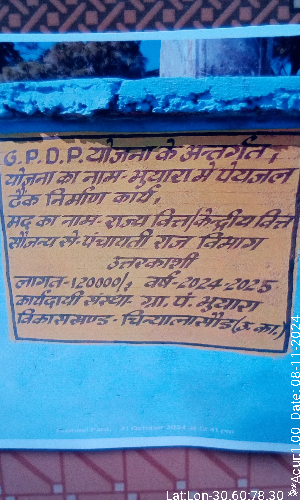 G.P.D.P. योजना के अन्तर्गत,
योजना का नाम- भुयारा मे पेयजल
टैंक निर्माण कार्य,
मद का नाम- राज्य वित्त/केन्द्रीय वित्त
सौजन्य से- पंचायती राज विभाग
उत्तरकाशी
लागत-120000/, वर्ष-2024-2025
कार्यदायी संस्था- ग्रा. पं. भुयारा
विकासखण्ड- चिन्यालीसौड़ (उ.का.)
31 October 2024 at 12:41 pm
Lat:Lon-30.60:78.30
**Acur:1.00 Date: 08-11-2024